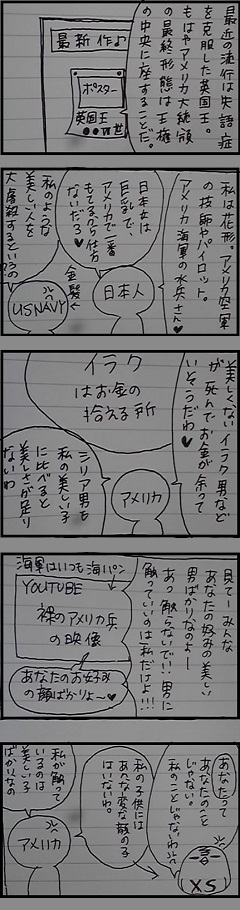 最近の流行は失語症
を克服した英国王。
もはやアメリカ大統領
の最終形態は王権
の中央に座することだ。
最新作♪
ポスター
英国王
●●Ⅵ世
私は花形。アメリカ空軍
の技師やパイロット。
アメリカ海軍の水兵さん♥
日本女は
巨乳で、
アメリカで一番
もてるから仕方
ないだろ♥
日本人
金髪
私のような
美しい人を
大虐殺するというの
USNAVY
美しくないイラク男など
が死んでお金が余って
いそうだわ♥
イラク
はお金の
拾える所
アメリカ
シリア男も
私の美しい子
に比べると
美しさが足り
ないわ
見てーみんな
あなたの好みの美しい
男ばかりなのよー
あっ触らないで!!男に
触っていいのは私だけよ!!!
海軍はいつも海パン
YOUTUBE
裸のアメリカ兵
の映像
あなたのお好み
の顔ばかりよ〜♥
あなたって
あなたのこと
じゃない。
私のことじゃないわ
XS
私の子供には
あんな変な顔の子
はいないわ。
アメリカ
私が触って
いるのは
美しい子
ばかりなの